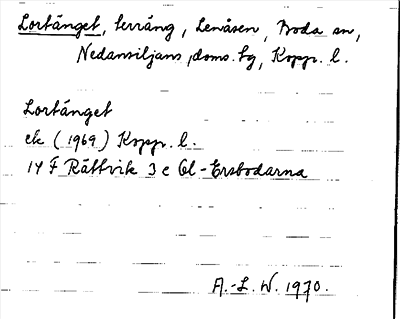 Lortänget, terräng, Lenåsen, Boda sn,
Nedansiljans doms. tg, Kopp. l.
Lortänget
ek (1969) Kopp. l.
14 F Rättvik 3 e Ol-Ersbodarna
A.-L. W. 1970.